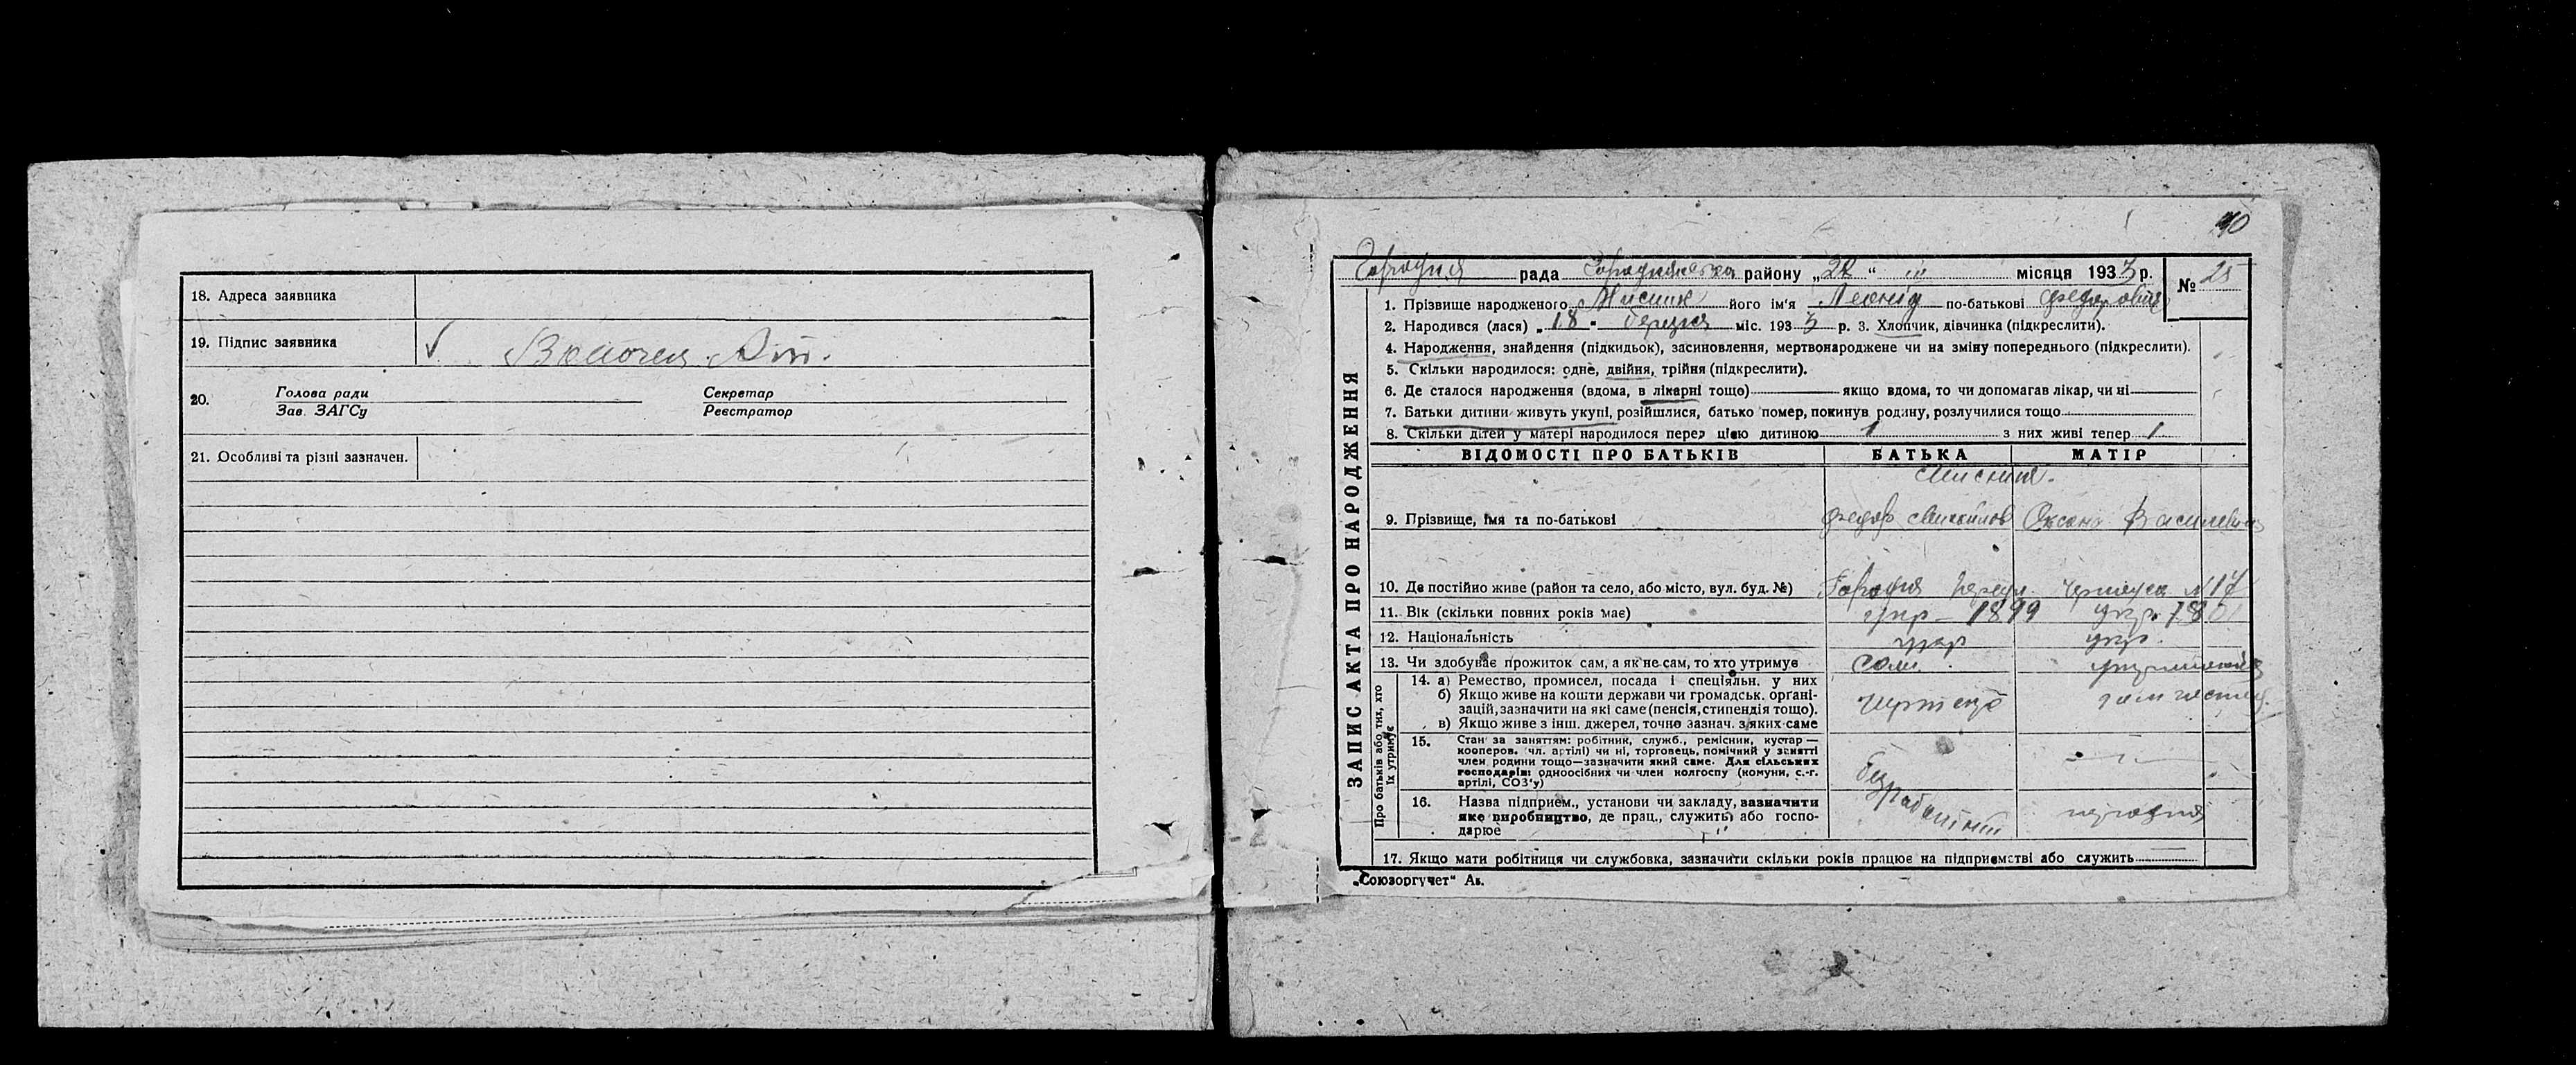 18. Адреса заявника
19. Підпис заявника
20. Голова ради Секретар
Зав. ЗАГСу Реєстратор
21. Особливі та різні зазначен.
40
Городня рада Городнянська району „22“ III місяця 1933 р. № 25
ЗАПИС АКТА ПРО НАРОДЖЕННЯ
1. Прізвище народженого його ім'я Леонід по-батькові Федорович
2. Народився (лася) „18“ березня міс. 1933 р. 3. Хлопчик, дівчинка (підкреслити).
4. Народження, знайдення (підкидьок), засиновлення, мертвонароджене чи на зміну попереднього (підкреслити).
5. Скільки народилося: одне, двійня, трійня (підкреслити).
6. Де сталося народження (вдома, в лікарні тощо) якщо вдома, то чи допомагав лікар, чи ні
7. Батьки дитини живуть укупі, розійшлися, батько помер, покинув родину, розлучилися тощо
8. Скільки дітей у матері народилося перед цією дитиною 1 з них живі тепер 1
ВІДОМОСТІ ПРО БАТЬКІВ БАТЬКА МАТІР
9. Прізвище, імя та по-батькові Федор Оксана Василевна
10. Де постійно живе (район та село, або місто, вул. буд. №) Городня №17
11. Вік (скільки повних років має) укр 1899 укр.
12. Національність укр укр.
13. Чи здобуває прожиток сам, а як не сам, то хто утримує сам.
Про батьків або тих, хто їх утримує
14. а) Ремество, промисел, посада і спеціяльн. у них
б) Якщо живе на кошти держави чи громадськ. органі-
зацій, зазначити на які саме (пенсія, стипендія тощо).
в) Якщо живе з інш. джерел, точно зазнач. з яких саме
15. Стан за заняттям: робітник, служб., ремісник, кустар—
кооперов. (чл. артілі) чи ні, торговець, помічний у занятті
член родини тощо—зазначити який саме. Для сільських
господарів: одноосібних чи член колгоспу (комуни, с.-г.
артілі, СОЗ'у)
безработний
16. Назва підприєм., установи чи закладу, зазначити
яке виробництво, де прац., служить або госпо-
дарює
17. Якщо мати робітниця чи службовка, зазначити скільки років працює на підприємстві або служить
„Союзоргучет“ Ак.